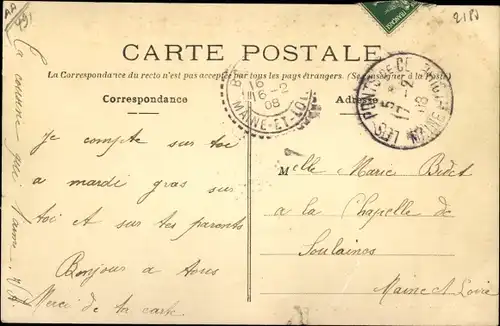 AA
491
2180
CARTE POSTALE
La Correspondance du recto n'est pas acceptée par tous les pays étrangers. (Se renseigner à la Poste)
Correspondance
Adresse
16-2
08
MAINE-ET-LOIRE
LES PONTS-DE-CÉ
17-2
08
MAINE-ET-LOIRE
Je compte sur toi
a mardi gras sur
toi et sur tes parents
Bonjour a tous
Merci de ta carte
La cousine qui t'aime
Melle Marie Bidet
a la Chapelle de
Soulaines
Maine et Loire